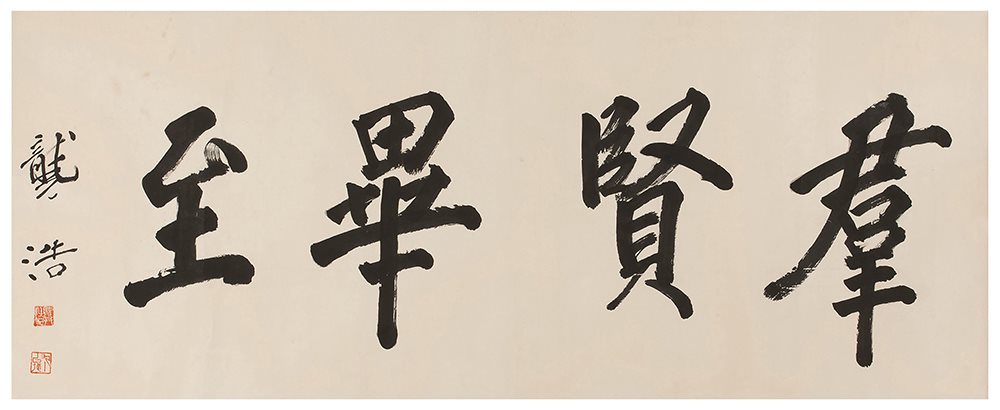 羣賢畢至
龔浩